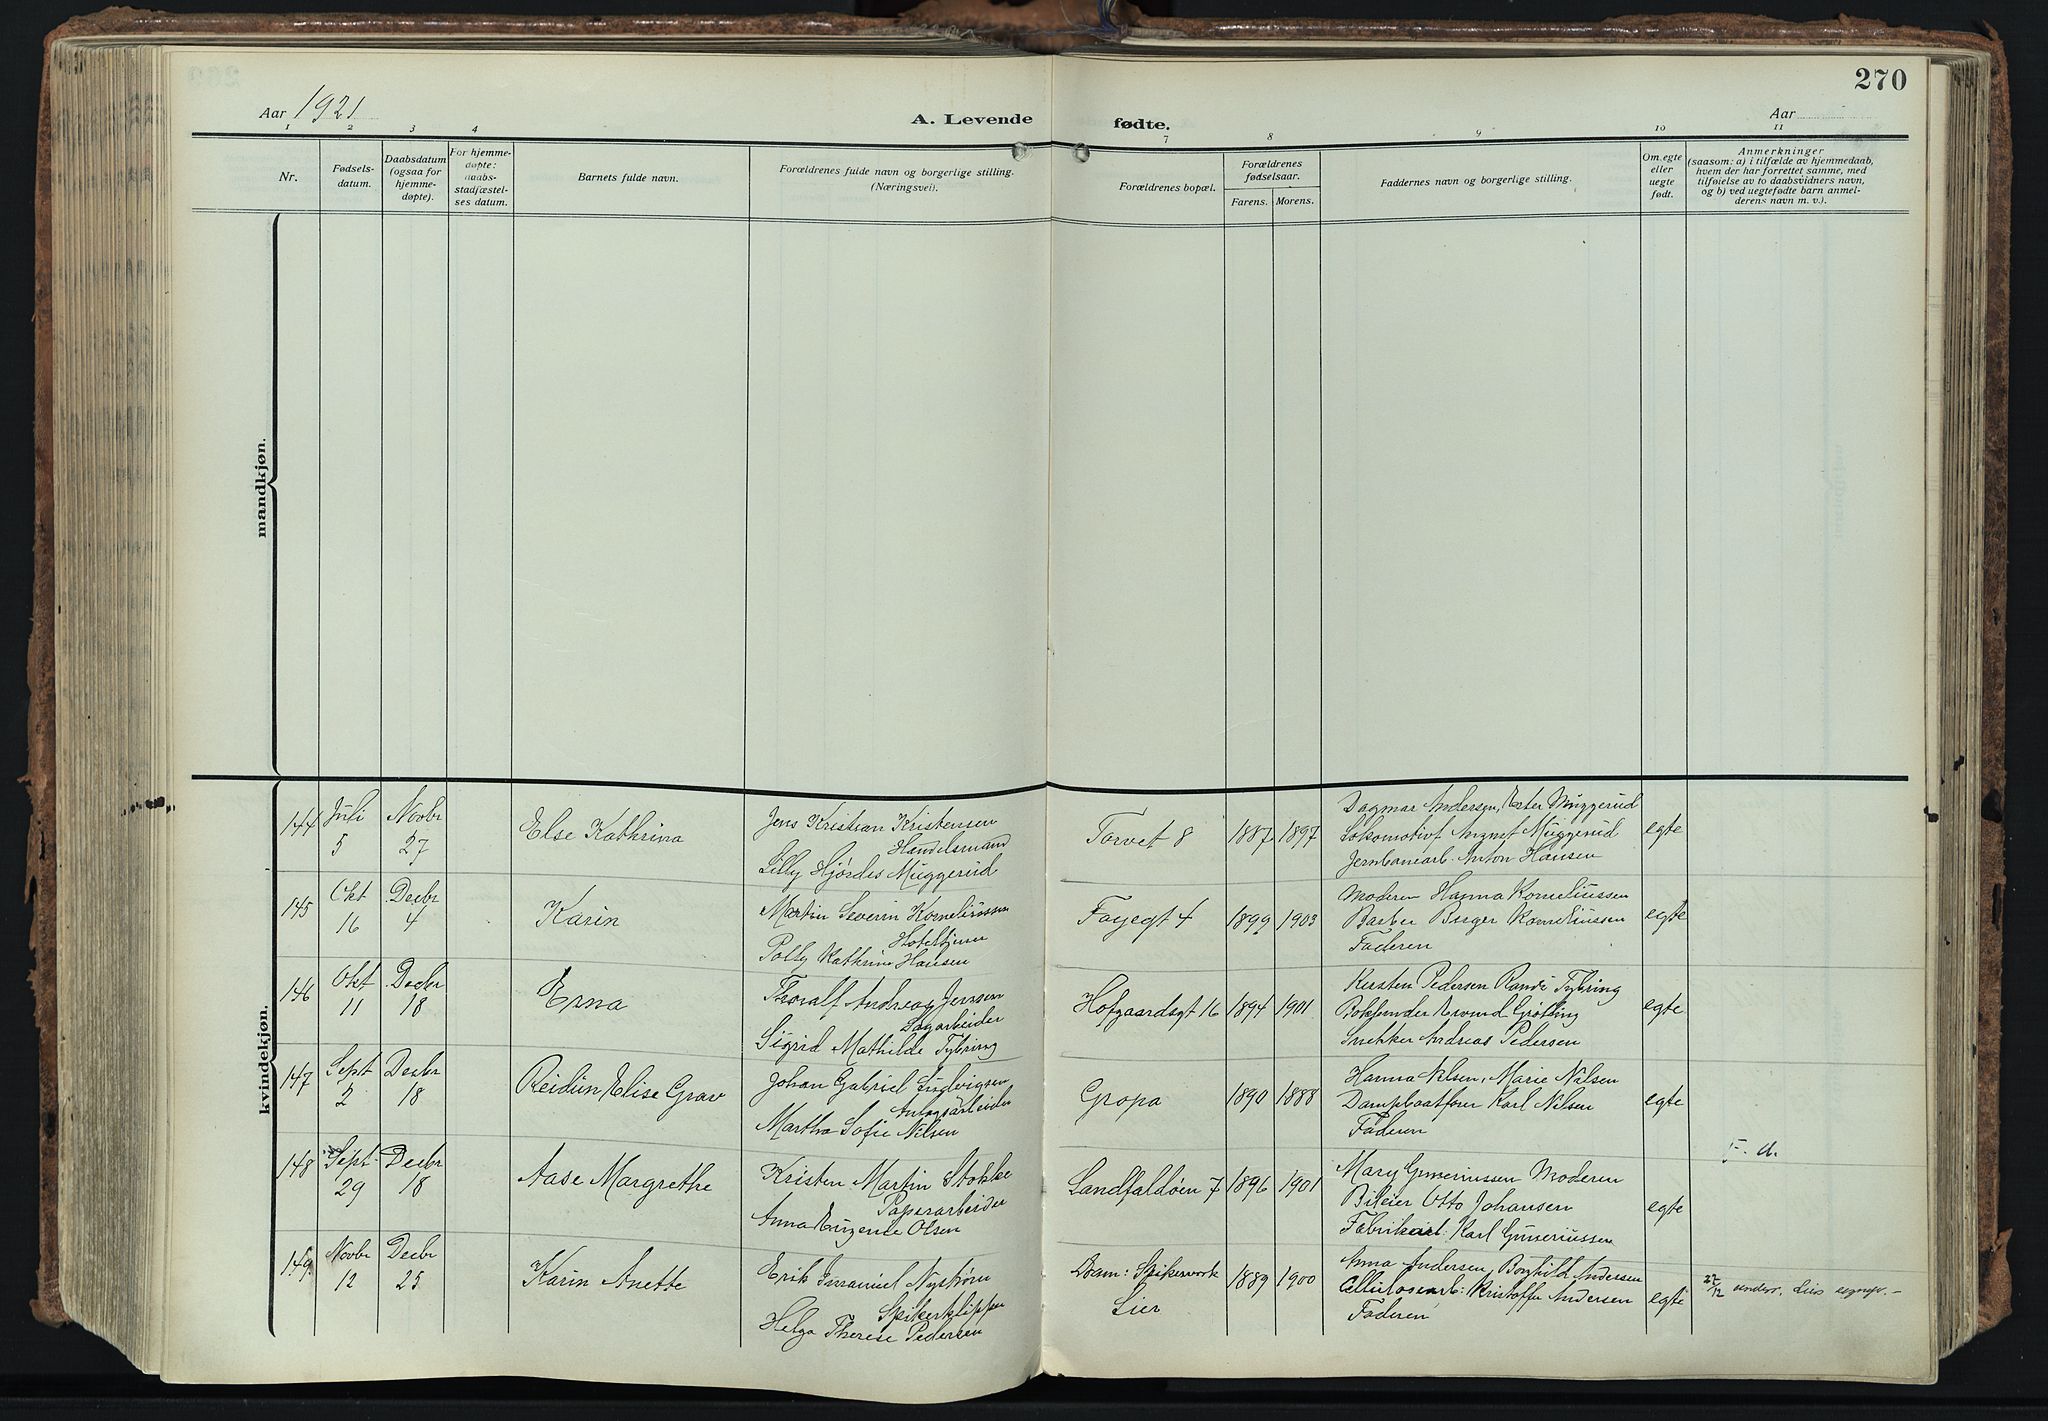 270
Aar 1921
A. Levende fødte.
Aar
1 2 3 4 7 8 9 10 11
Nr.
Fødsels-
datum.
Daabsdatum
(ogsaa for
hjemme-
døpte).
For hjemme-
døpte:
daabs-
stadfæstel-
ses datum.
Barnets fulde navn.
Forældrenes fulde navn og borgerlige stilling.
(Næringsvei).
Forældrenes bopæl.
Forældrenes
fødselsaar.
Farens. Morens.
Faddernes navn og borgerlige stilling.
Om egte
eller
uegte
født.
Anmerkninger
(saasom: a) i tilfælde av hjemmedaab,
hvem der har forrettet samme, med
tilføielse av to daabsvidners navn,
og b) ved uegtefødte barn anmel-
derens navn m. v.).
mandkjøn.
kvindekjøn.
144
Juli
5
Novbr
27
Else Kathrina
Jens Kristian Kristensen
Handelsmand
Lilly Hjørdis Muggerud
Torvet 8
1887
1897
Dagmar Andersen, Ester Muggerud
Lokomotivf August Muggerud
Jernbanearb. Anton Hansen
egte
145
Okt
16
Decbr
4
Karin
Martin Severin Korneliussen
Hoteltjener
Polly Kathrine Hansen
Fayegt 4
1899
1903
Moderen Hanna Korneliussen
Barber Birger Korneliussen
Faderen
egte
146
Okt
11
Decbr
18
Erna
Thoralf Andreas Jensen
Sagarbeider
Sigrid Mathilde Tybring
Hofgaardsgt 16
1894
1901
Kirsten Pedersen Randi Tybring
Bokbinder Eivind Grøtting
Snekker Andreas Pedersen
egte
147
Sept
2
Decbr
18
Reidun Elise Grav
Johan Gabriel Ludvigsen
Anlægsarbeider
Martha Sofie Nilsen
Gropa
1890
1888
Hanna Nilsen, Marie Nilsen
Dampbaatfører Karl Nilsen
Faderen
egte
148
Sept.
29
Decbr
18
Aase Margrethe
Kristen Martin Stokke
Papirarbeider
Anna Eugenie Olsen
Landfaldøen 7
1896
1901
Mary Guneriussen Moderen
Bileier Otto Johansen
Fabrikarb: Karl Guneriussen
egte
F. a.
149.
Novbr
12
Decbr
25
Karin Anette
Erik Emanuel Nystrøm
Spikerklipper
Helga Therese Pedersen
Dram: Spikerverk
Lier
1889
1900
Anna Andersen, Borghild Andersen
Cellulosearb: Kristoffer Andersen
Faderen
egte
27/12 underr. Lier sognepr. –